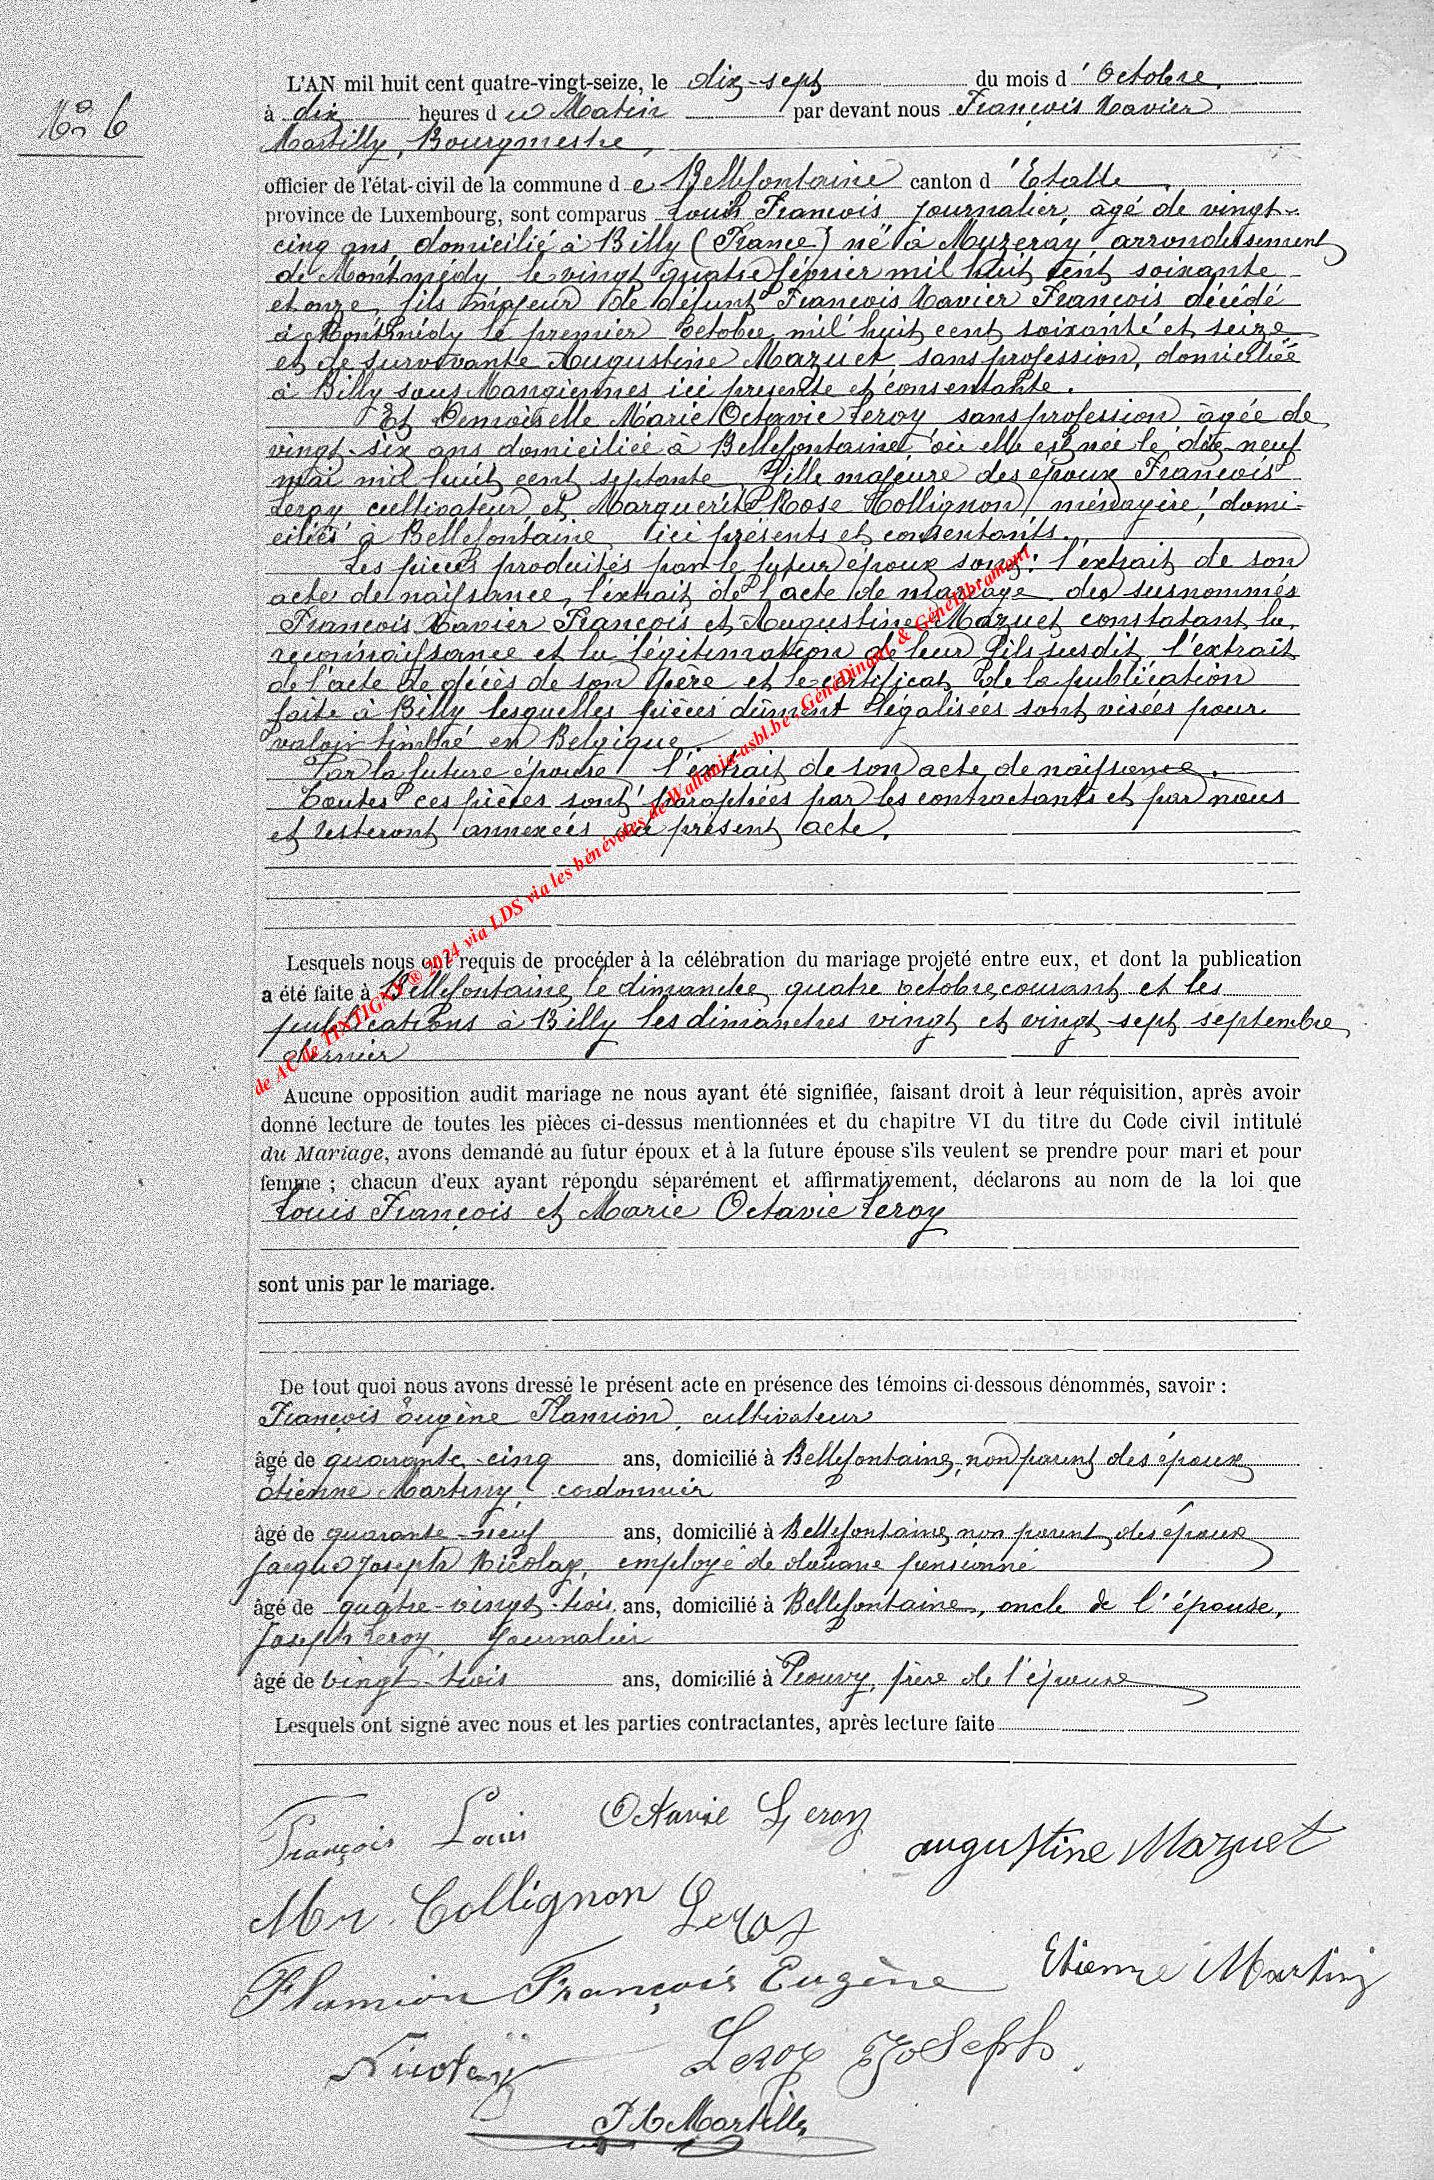 No 6
L'AN mil huit cent quatre-vingt-seize, le dix-sept du mois d' Octobre,
à dix heures d u Matin par devant nous François Xavier
Martilly, Bourgmestre,
officier de l'état-civil de la commune d e Bellefontaine canton d 'Etalle,
province de Luxembourg, sont comparus Louis François journalier, âgé de vingt-
cinq ans, domicilié à Billy (France) né à Muzeray arrondissement
de Montmédy le vingt quatre février mil huit cent soixante
et onze, fils majeur de défunt François Xavier François décédé
à Montmédy le premier octobre mil huit cent soixante et seize
et de survivante Augustine Mazuet sans profession, domiciliée
à Billy sous Mangiennes ici présente et consentante.
Et Demoiselle Marie Octavie Leroy sans profession âgée de
vingt-six ans domiciliée à Bellefontaine, où elle est née le dix-neuf
mai mil huit cent septante, fille majeure des époux François
Leroy cultivateur et Marguerite Rose Collignon, ménagère, domi-
ciliés à Bellefontaine ici présents et consentants.
Les pièces produites par le futur époux sont: l'extrait de son
acte de naissance, l'extrait de l'acte de mariage des susnommés
François Xavier François et Augustine Mazuet constatant la
reconnaissance et la légitimation de leur fils susdit, l'extrait
de l'acte de décès de son père et le certificat de la publication
faite à Billy lesquelles pièces dûment légalisées sont visées pour
valoir timbré en Belgique.
Par la future épouse l'extrait de son acte de naissance.
Toutes ces pièces sont paraphées par les contractants et par nous
et resteront annexées au présent acte.
de AC de TINTIGNY® 2024 via LDS via les bénévoles de Wallonia-asbl.be , GénéDinant & GénéLibramont
Lesquels nous ont requis de procéder à la célébration du mariage projeté entre eux, et dont la publication
a été faite à Bellefontaine, le dimanche quatre octobre courant et les
publications à Billy les dimanches vingt et vingt-sept septembre
dernier
Aucune opposition audit mariage ne nous ayant été signifiée, faisant droit à leur réquisition, après avoir
donné lecture de toutes les pièces ci-dessus mentionnées et du chapitre VI du titre du Code civil intitulé
du Mariage, avons demandé au futur époux et à la future épouse s'ils veulent se prendre pour mari et pour
femme ; chacun d'eux ayant répondu séparément et affirmativement, déclarons au nom de la loi que
Louis François et Marie Octavie Leroy
sont unis par le mariage.
De tout quoi nous avons dressé le présent acte en présence des témoins ci-dessous dénommés, savoir :
François Eugène Flamion, cultivateur
âgé de quarante-cinq ans, domicilié à Bellefontaine, non parent des époux
Etienne Martiny, cordonnier
âgé de quarante-neuf ans, domicilié à Bellefontaine, non parent des époux
Jacque Joseph Nicolay, employé de douane pensionné
âgé de quatre-vingt-trois ans, domicilié à Bellefontaine, oncle de l'épouse,
Joseph Leroy journalier
âgé de vingt-trois ans, domicilié à Prouvy, frère de l'épouse
Lesquels ont signé avec nous et les parties contractantes, après lecture faite
François Louis Octavie Leroy
augustine Mazuet
Mr. Collignon Leroy
Flamion François Eugène Etienne Martiny
Nicolaÿ Leroy Joseph.
Martilly